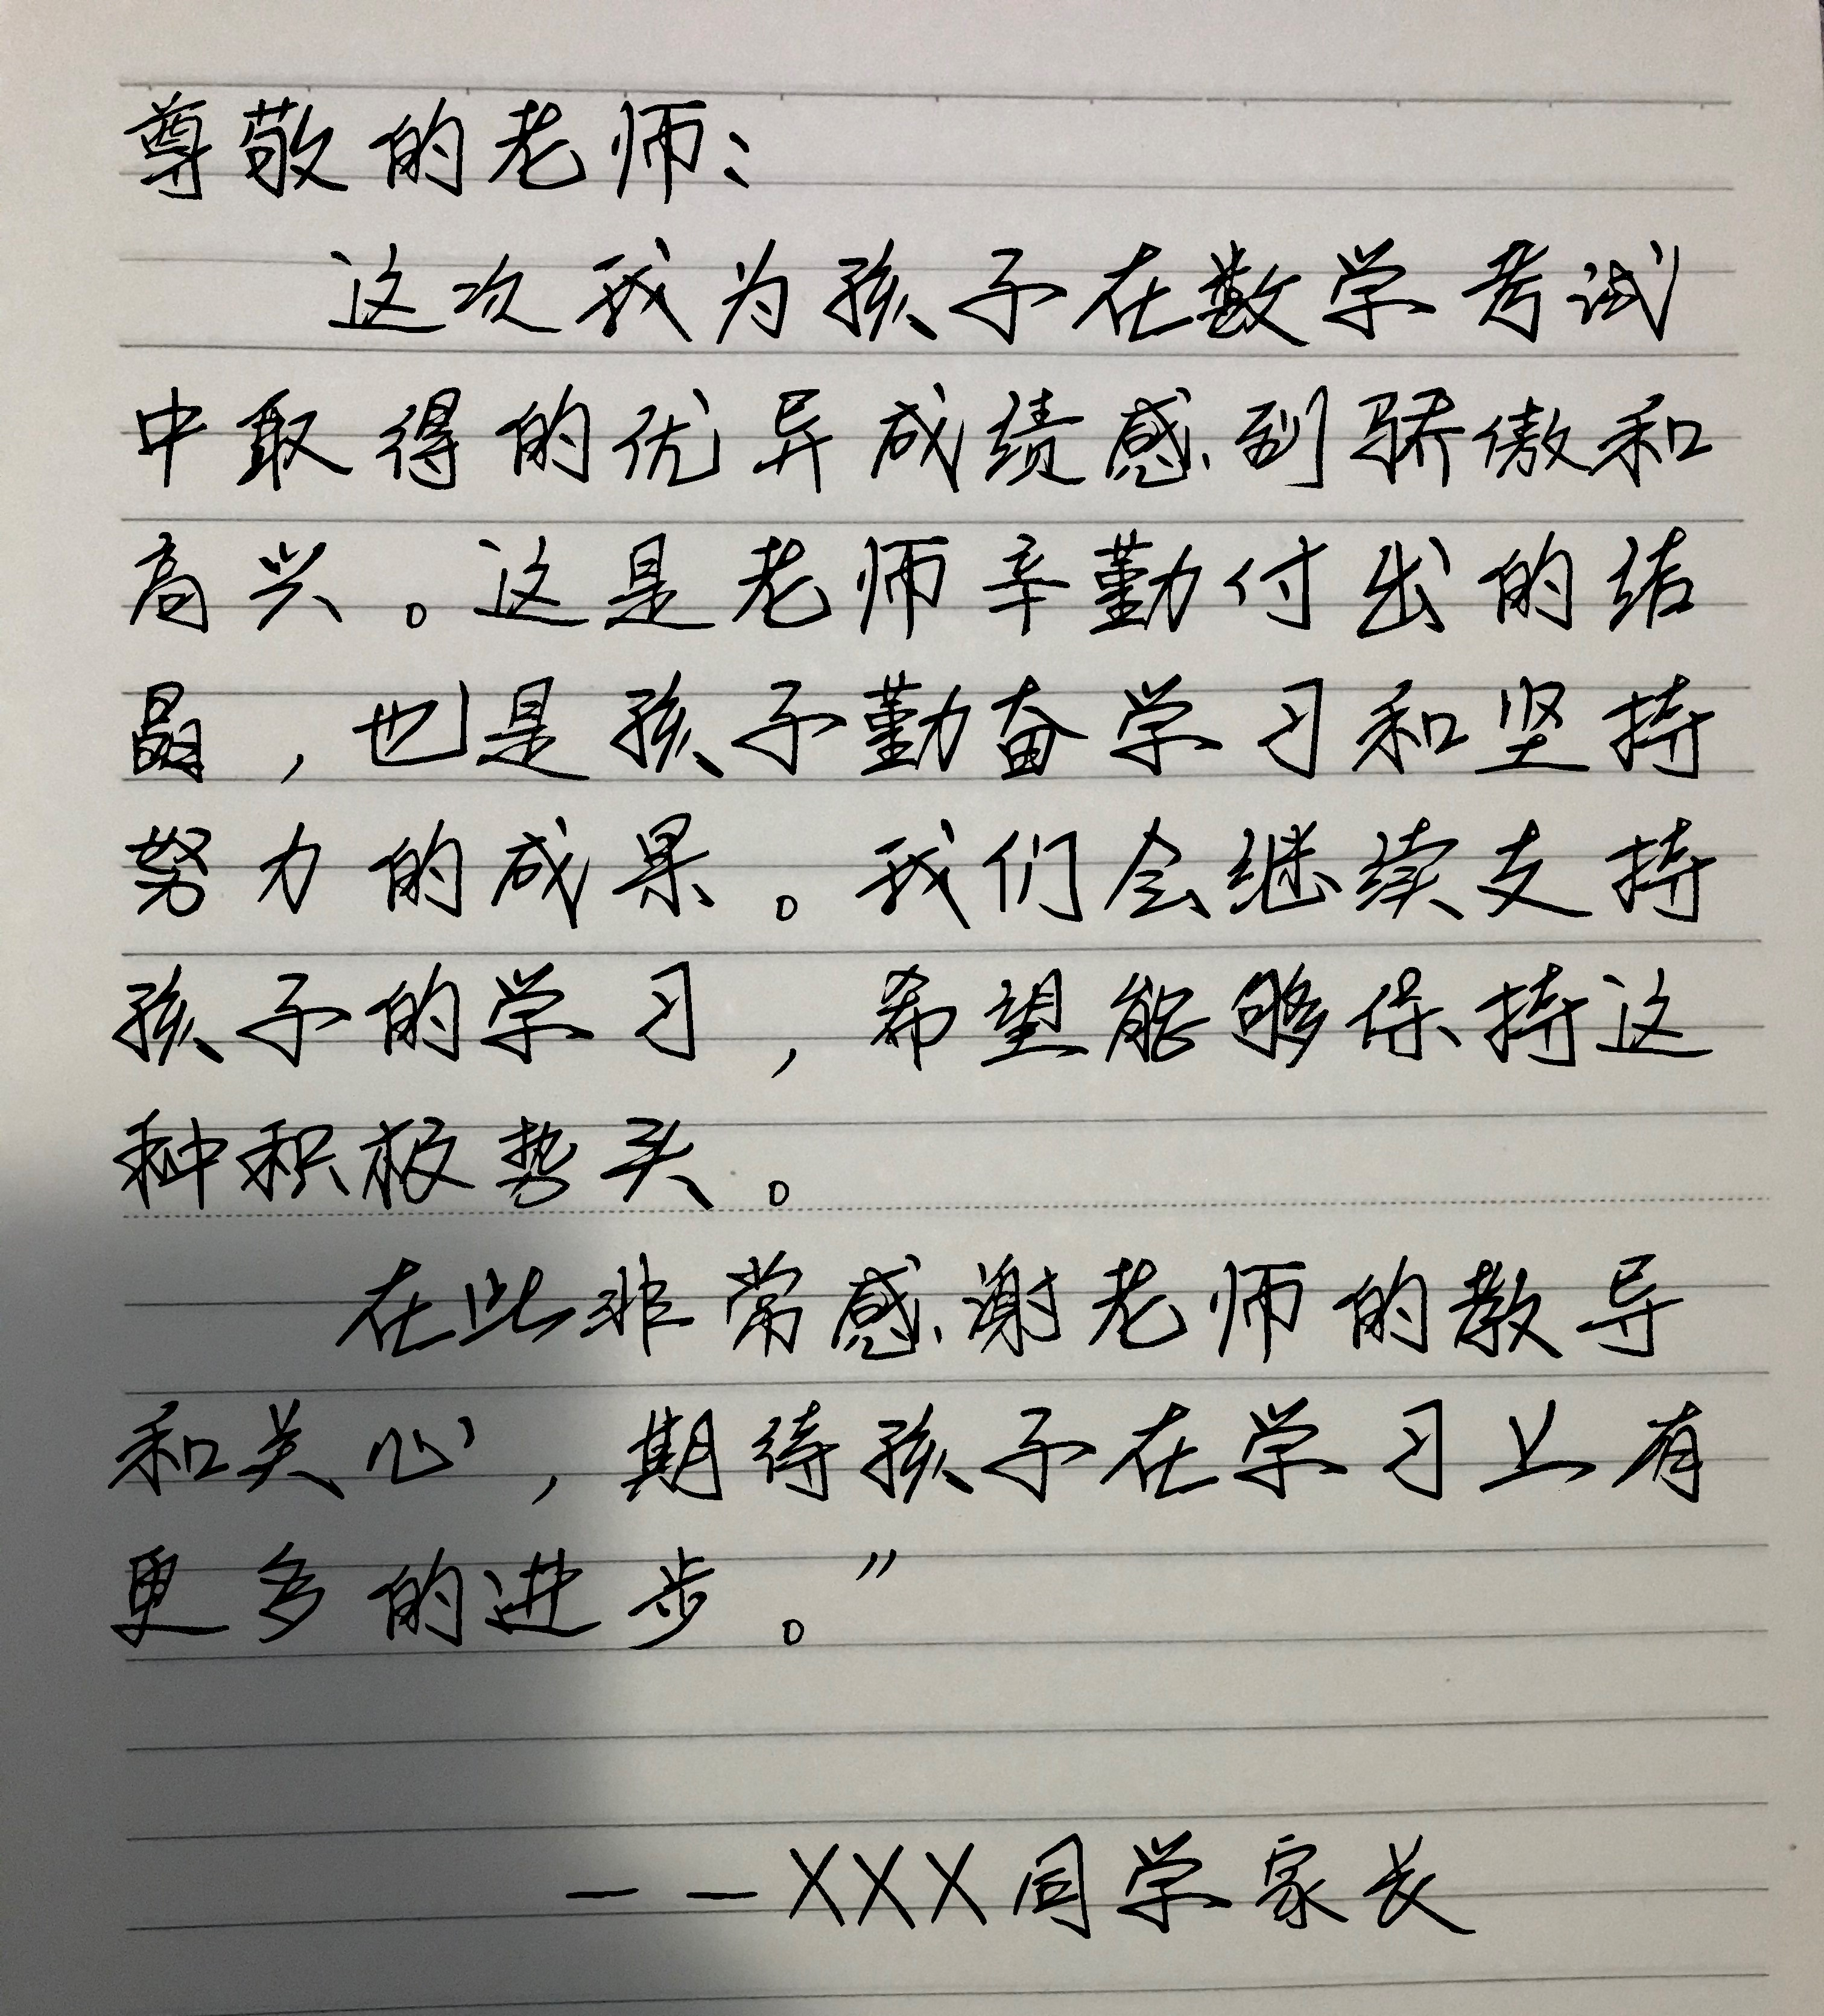 尊敬的老师：
这次我为孩子在数学考试
中取得的优异成绩感到骄傲和
高兴。这是老师辛勤付出的结
晶，也是孩子勤奋学习和坚持
努力的成果。我们会继续支持
孩子的学习，希望能够保持这
种积极势头。
在此非常感谢老师的教导
和关心，期待孩子在学习上有
更多的进步。”
——XXX同学家长